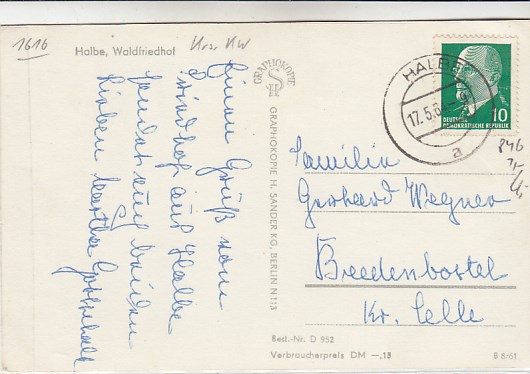 1616
Halbe, Waldfriedhof
Krs. KW
Einen Gruß vom
Friedhof aus Halbe
sendet euch beiden
Lieben Martha
GRAPHOKOPIE
GRAPHOKOPIE H. SANDER KG, BERLIN N 113
HALBE
17.5.6
a
10
DEUTSCHE
DEMOKRATISCHE REPUBLIK
846
Familie
Gerhard Wegner
Breedenbostel
Kr. Celle
Best.-Nr. D 952
Verbraucherpreis DM —,15
B 8/61